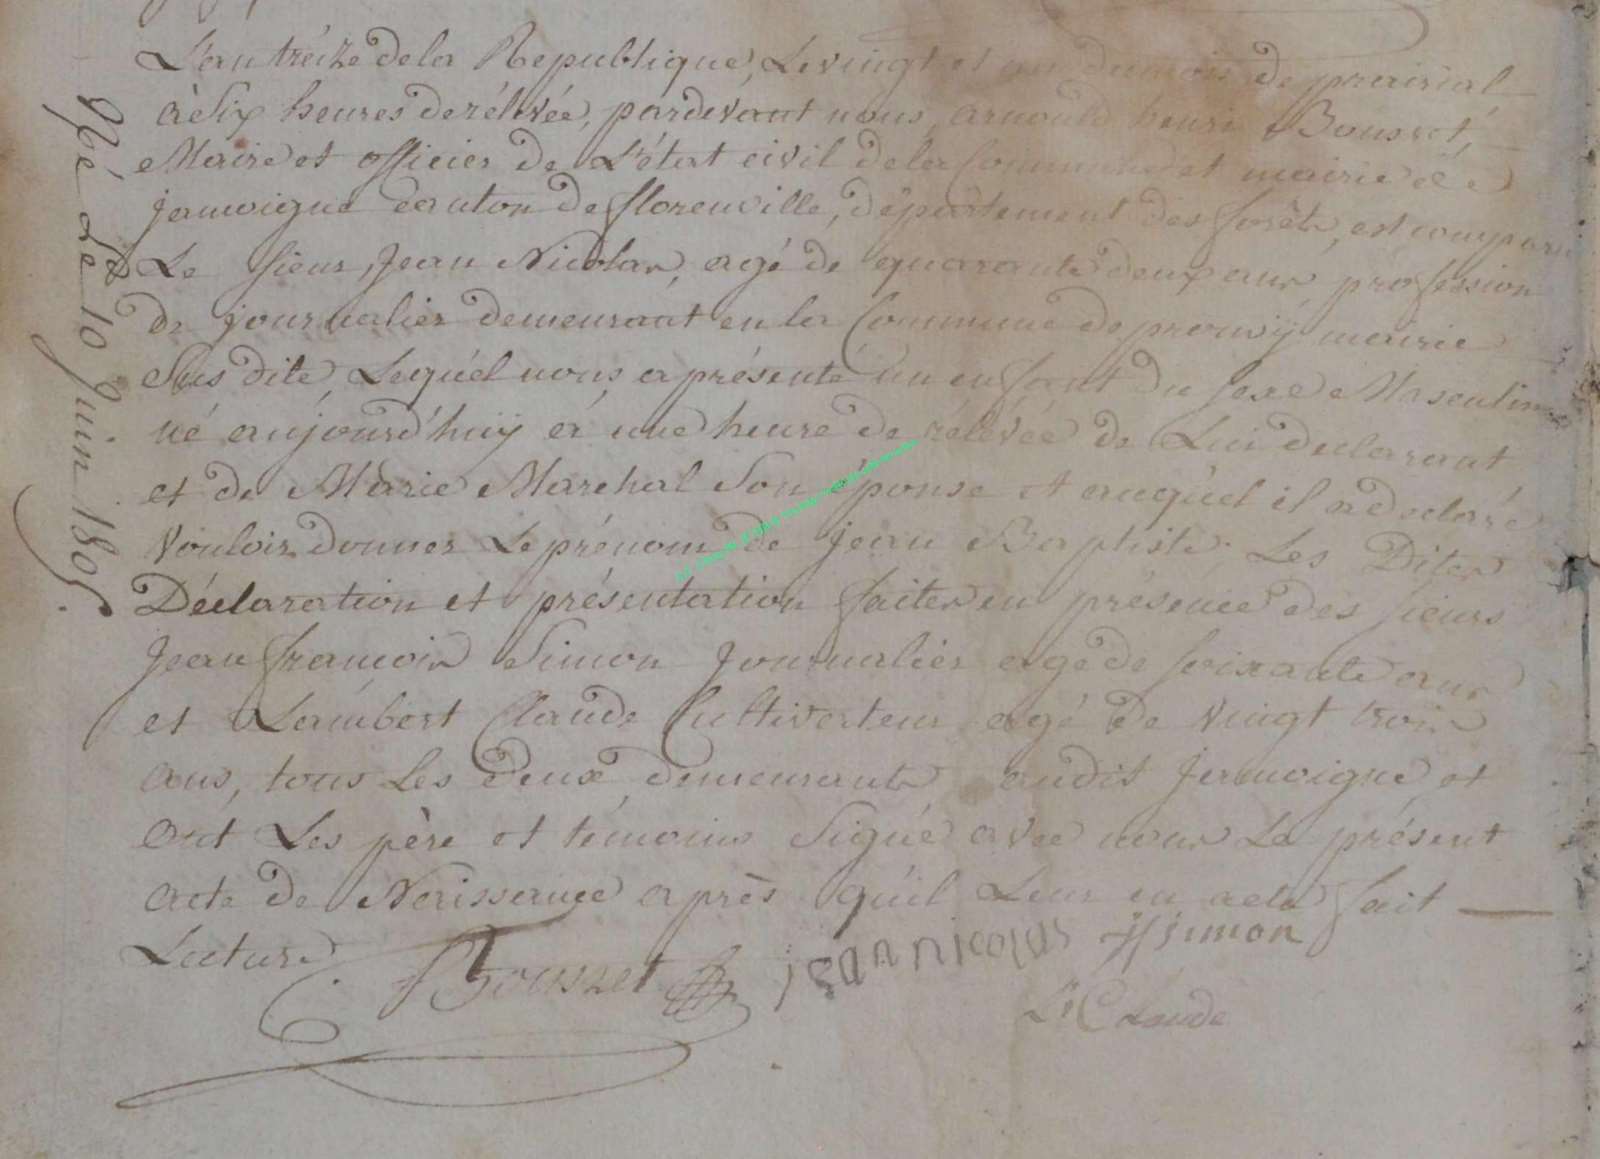 L'an tréize de la Republique, Le vingt et un du mois de prairial
à Six heures de rélevée, pardevant nous arnould henri Bousset,
Maire et officier de L'état civil de la Commune et mairie de
jamoigne canton de florenville, département des forêts, est comparu
Le sieur, Jean Nicolas, agé de quarante deux ans, profession
de journalier demeurant en la Commune de prouvÿ mairie
Sus dite, Lequél nous a présenté un enfant du sexe Masculin
né aujourd'huÿ à une heure de rélevée de Lui declarant
et de Marie Marchal Son épouse et auquél il a declaré
Vouloir donner Le prénom de jean Baptiste; Les Dites
Déclaration et présentation faites en présence des sieurs
Jean françois Simon Journalier agé de soixante ans
et Lambert Claude Cultivateur agé de vingt trois
ans, tous Les deux demeurants audit Jamoigne, et
Ont Les père et témoins Signé avec nous Le présent
acte de Naissance après qu'il Leur en a été fait
Lecture
Bousset jean nicolas jf simon
Lt Claude
Né Le 10 Juin 1805.